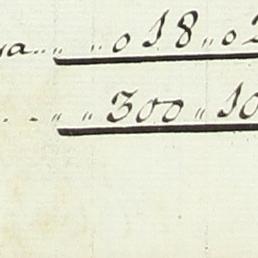 ga..„ „018„02
. .„ „300„10